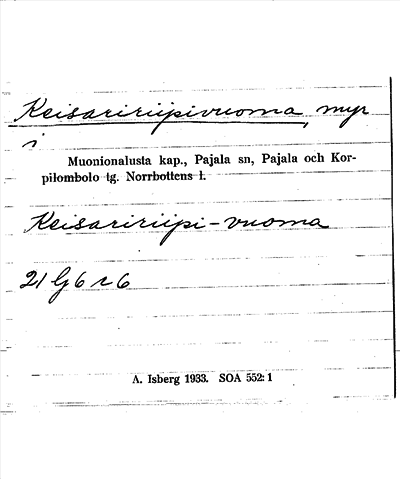 Keisaririipivuoma, myr
i
Muonionalusta kap., Pajala sn, Pajala och Kor-
pilombolo tg. Norrbottens l.
Keisaririipi-vuoma
21 Gj 6 r 6
A. Isberg 1933. SOA 552: 1